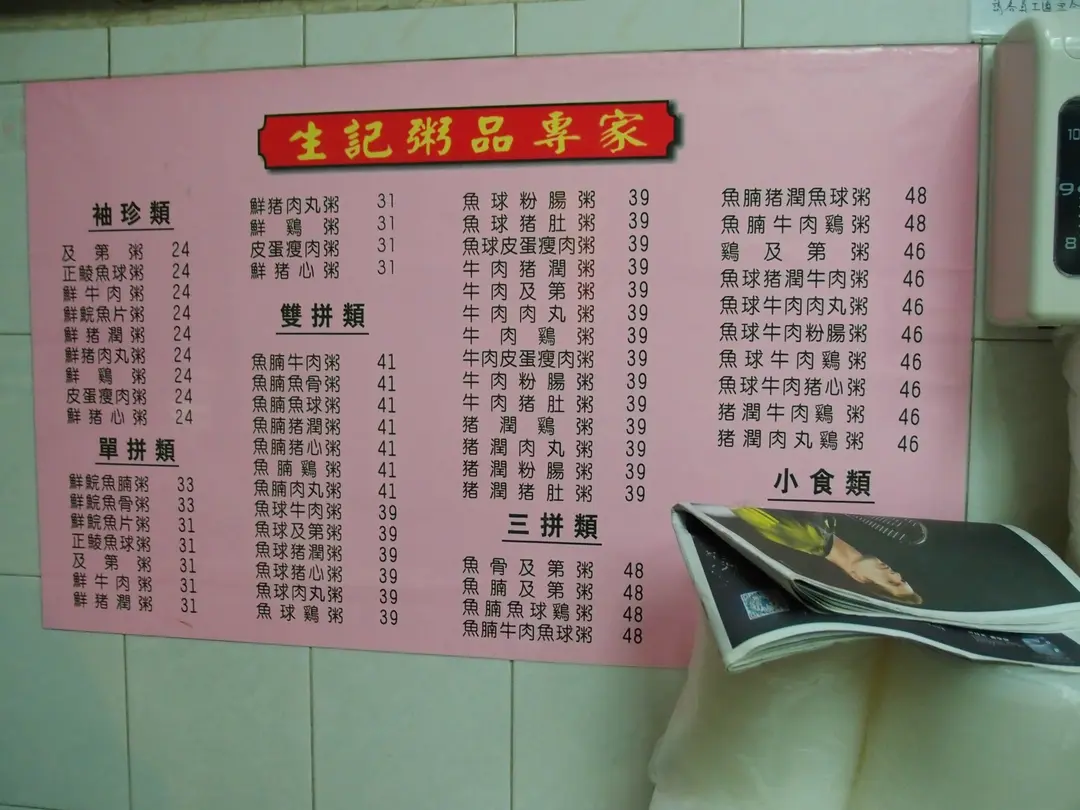 生記粥品專家
袖珍類
及第粥 24
正鯪魚球粥 24
鮮牛肉粥 24
鮮鯇魚片粥 24
鮮猪潤粥 24
鮮猪肉丸粥 24
鮮鷄粥 24
皮蛋瘦肉粥 24
鮮猪心粥 24
單拼類
鮮鯇魚腩粥 33
鮮鯇魚骨粥 33
鮮鯇魚片粥 31
正鯪魚球粥 31
及第粥 31
鮮牛肉粥 31
鮮猪潤粥 31
鮮猪肉丸粥 31
鮮鷄粥 31
皮蛋瘦肉粥 31
鮮猪心粥 31
雙拼類
魚腩牛肉粥 41
魚腩魚骨粥 41
魚腩魚球粥 41
魚腩猪潤粥 41
魚腩猪心粥 41
魚腩鷄粥 41
魚腩肉丸粥 41
魚球牛肉粥 39
魚球及第粥 39
魚球猪潤粥 39
魚球猪心粥 39
魚球肉丸粥 39
魚球鷄粥 39
魚球粉腸粥 39
魚球猪肚粥 39
魚球皮蛋瘦肉粥 39
牛肉猪潤粥 39
牛肉及第粥 39
牛肉肉丸粥 39
牛肉鷄粥 39
牛肉皮蛋瘦肉粥 39
牛肉粉腸粥 39
牛肉猪肚粥 39
猪潤鷄粥 39
猪潤肉丸粥 39
猪潤粉腸粥 39
猪潤猪肚粥 39
三拼類
魚骨及第粥 48
魚腩及第粥 48
魚腩魚球鷄粥 48
魚腩牛肉魚球粥 48
魚腩猪潤魚球粥 48
魚腩牛肉鷄粥 48
鷄及第粥 46
魚球猪潤牛肉粥 46
魚球牛肉肉丸粥 46
魚球牛肉粉腸粥 46
魚球牛肉鷄粥 46
魚球牛肉猪心粥 46
猪潤牛肉鷄粥 46
猪潤肉丸鷄粥 46
小食類
10
9
8